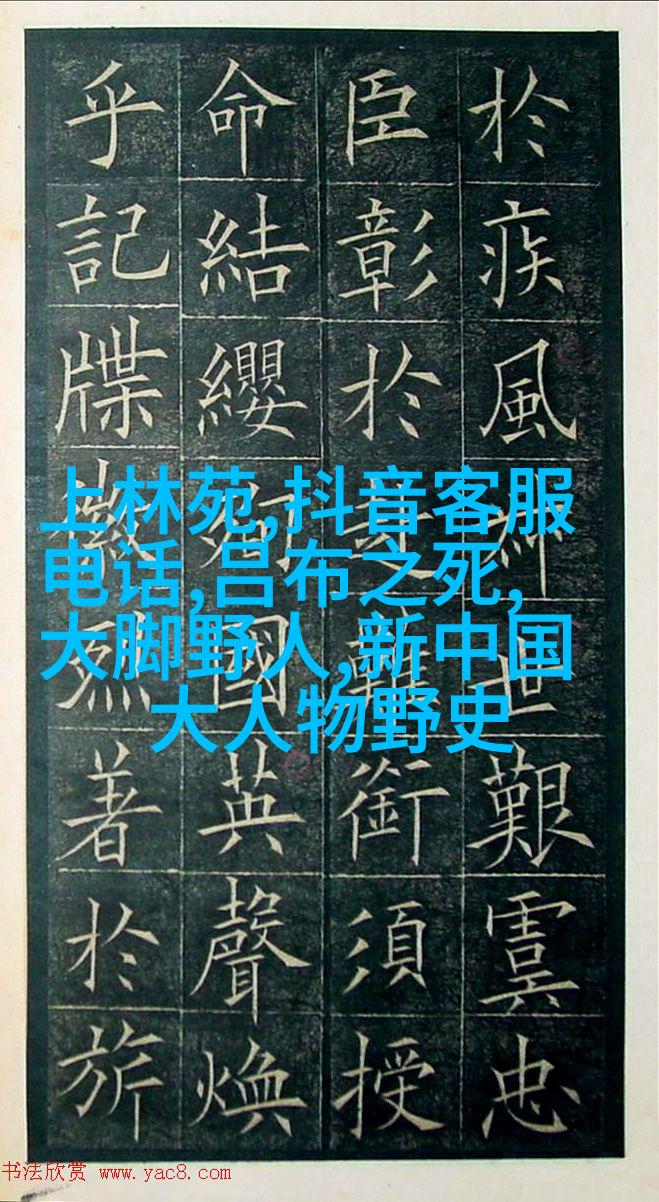 於疾風世艱虞忠
臣彰於銜須授
命結纓國英聲煥
乎記牒徽烈著於旂
上林苑,抖音客服
电话,吕布之死,
大脚野人,新中国
大人物野史
书法欣赏 www.yac8.com